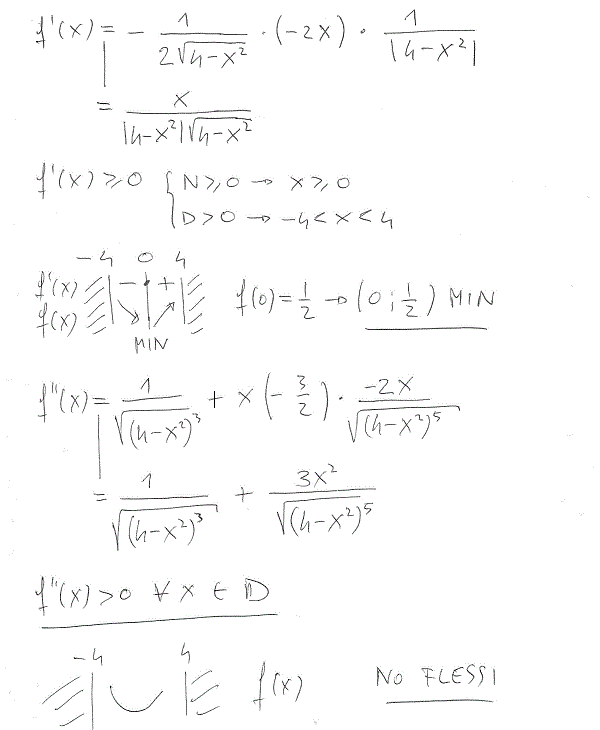 f'(x) = - 1/(2√(4-x²)) · (-2x) · 1/|4-x²|
= x/(|4-x²|√(4-x²))
f'(x) ≥ 0 { N ≥ 0 → x ≥ 0
D > 0 → -4 < x < 4
-4 0 4
f'(x) - +
f(x)
MIN
f(0) = 1/2 → (0; 1/2) MIN
f''(x) = 1/√((4-x²)³) + x(-3/2) · -2x/√((4-x²)⁵)
= 1/√((4-x²)³) + 3x²/√((4-x²)⁵)
f''(x) > 0 ∀ x ∈ D
-4 4
f(x) NO FLESSI